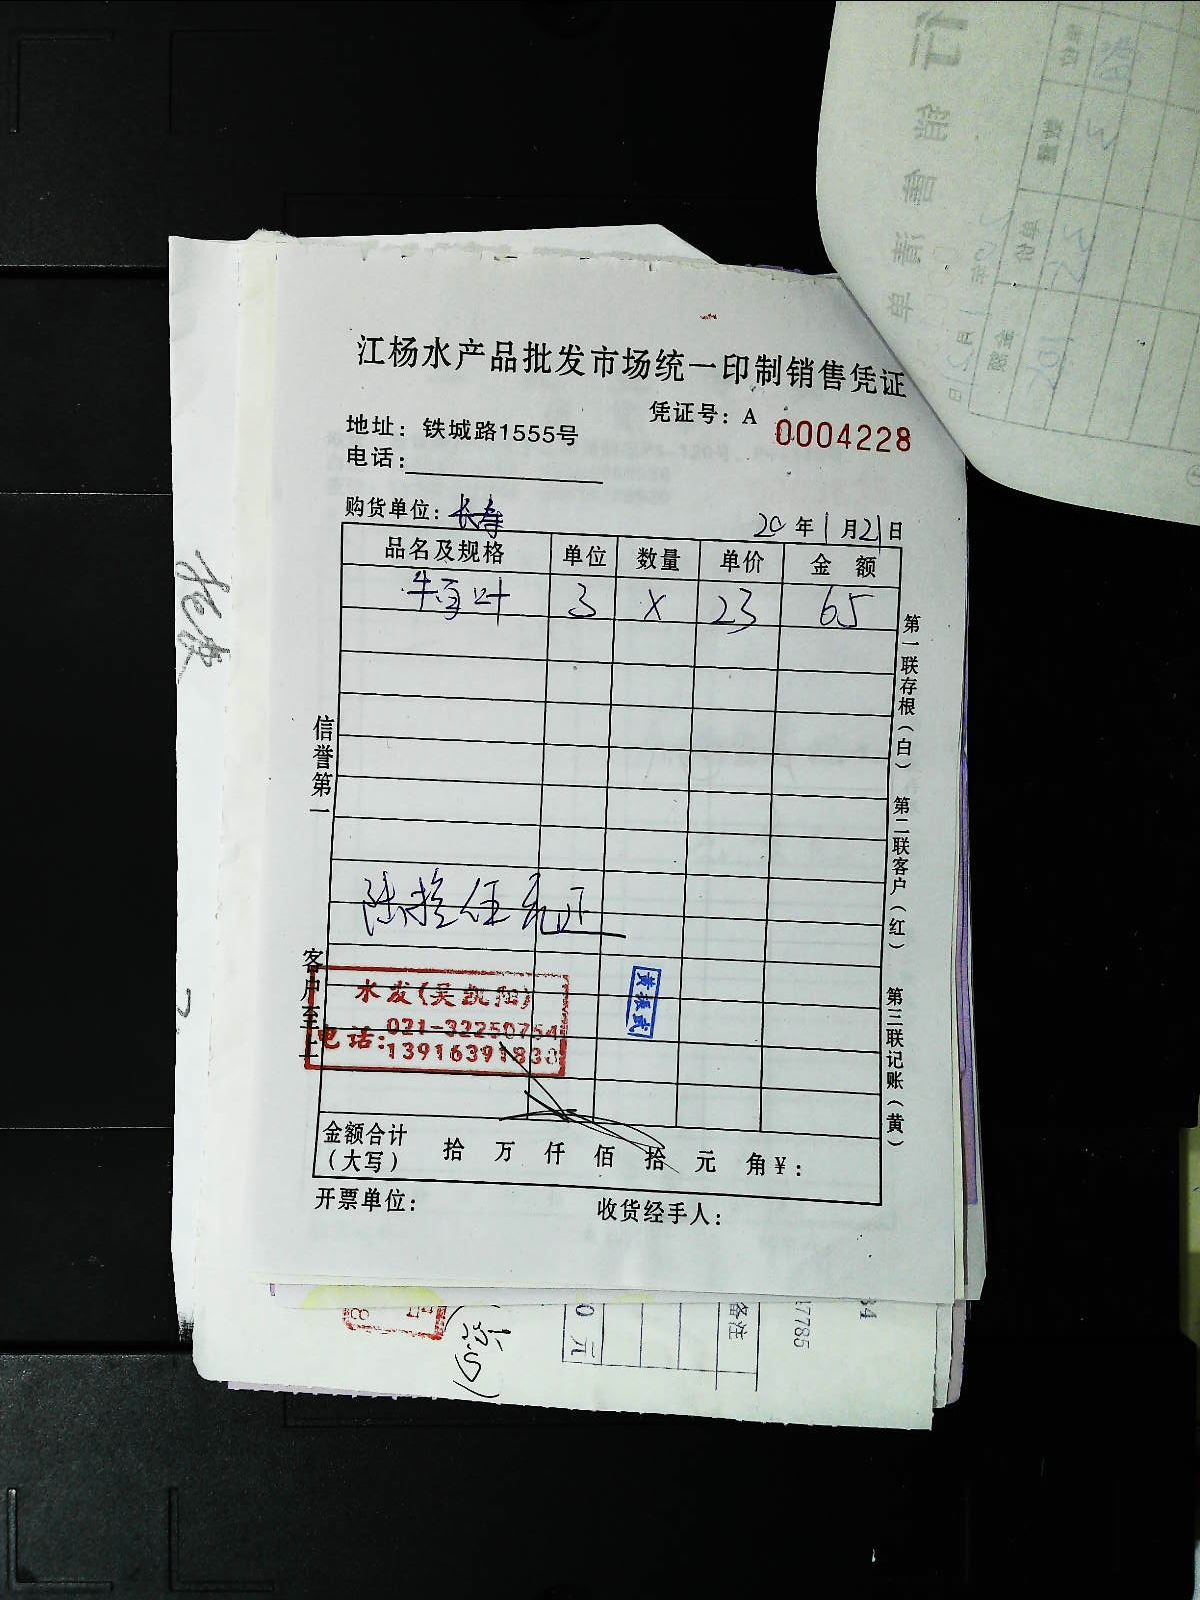 江杨水产品批发市场统一印制销售凭证
凭证号：A 0004228
地址：铁城路1555号
电话：
购货单位：长寿
20年1月21日
品名及规格 单位 数量 单价 金额
牛百叶 3 X 23 65
信誉第一
客户至上
第一联存根（白）
第二联客户（红）
第三联记账（黄）
水发(吴凯阳)
电话：021-32250754
13916391830
黄振武
金额合计（大写） 拾 万 仟 佰 拾 元 角￥：
开票单位：
收货经手人：
备注
0元